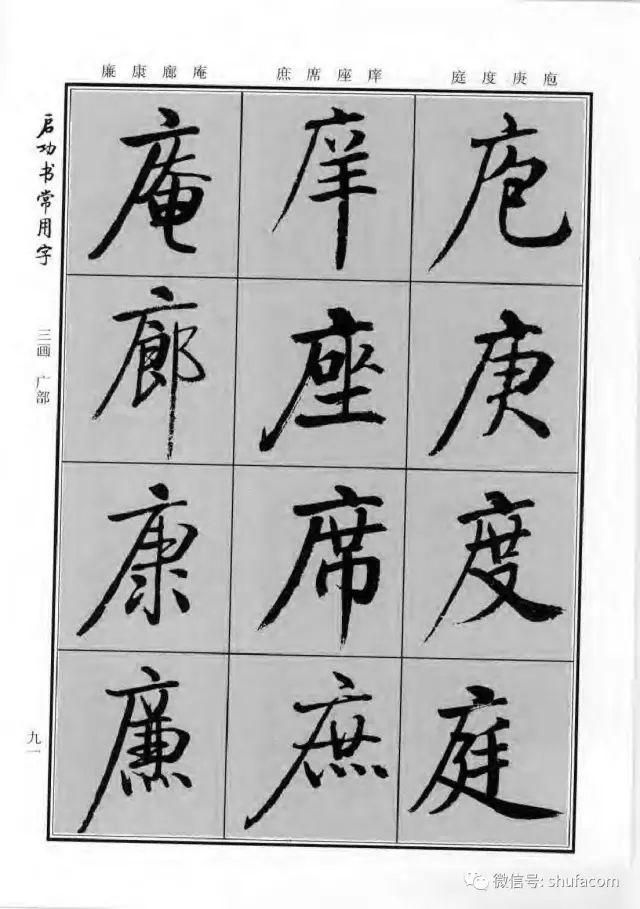 庖庚度庭 庠座席庶 庵廊康廉
庖庚度庭
庠座席庶
庵廊康廉
启功书常用字
三画 广部
九一
微信号: shufacom